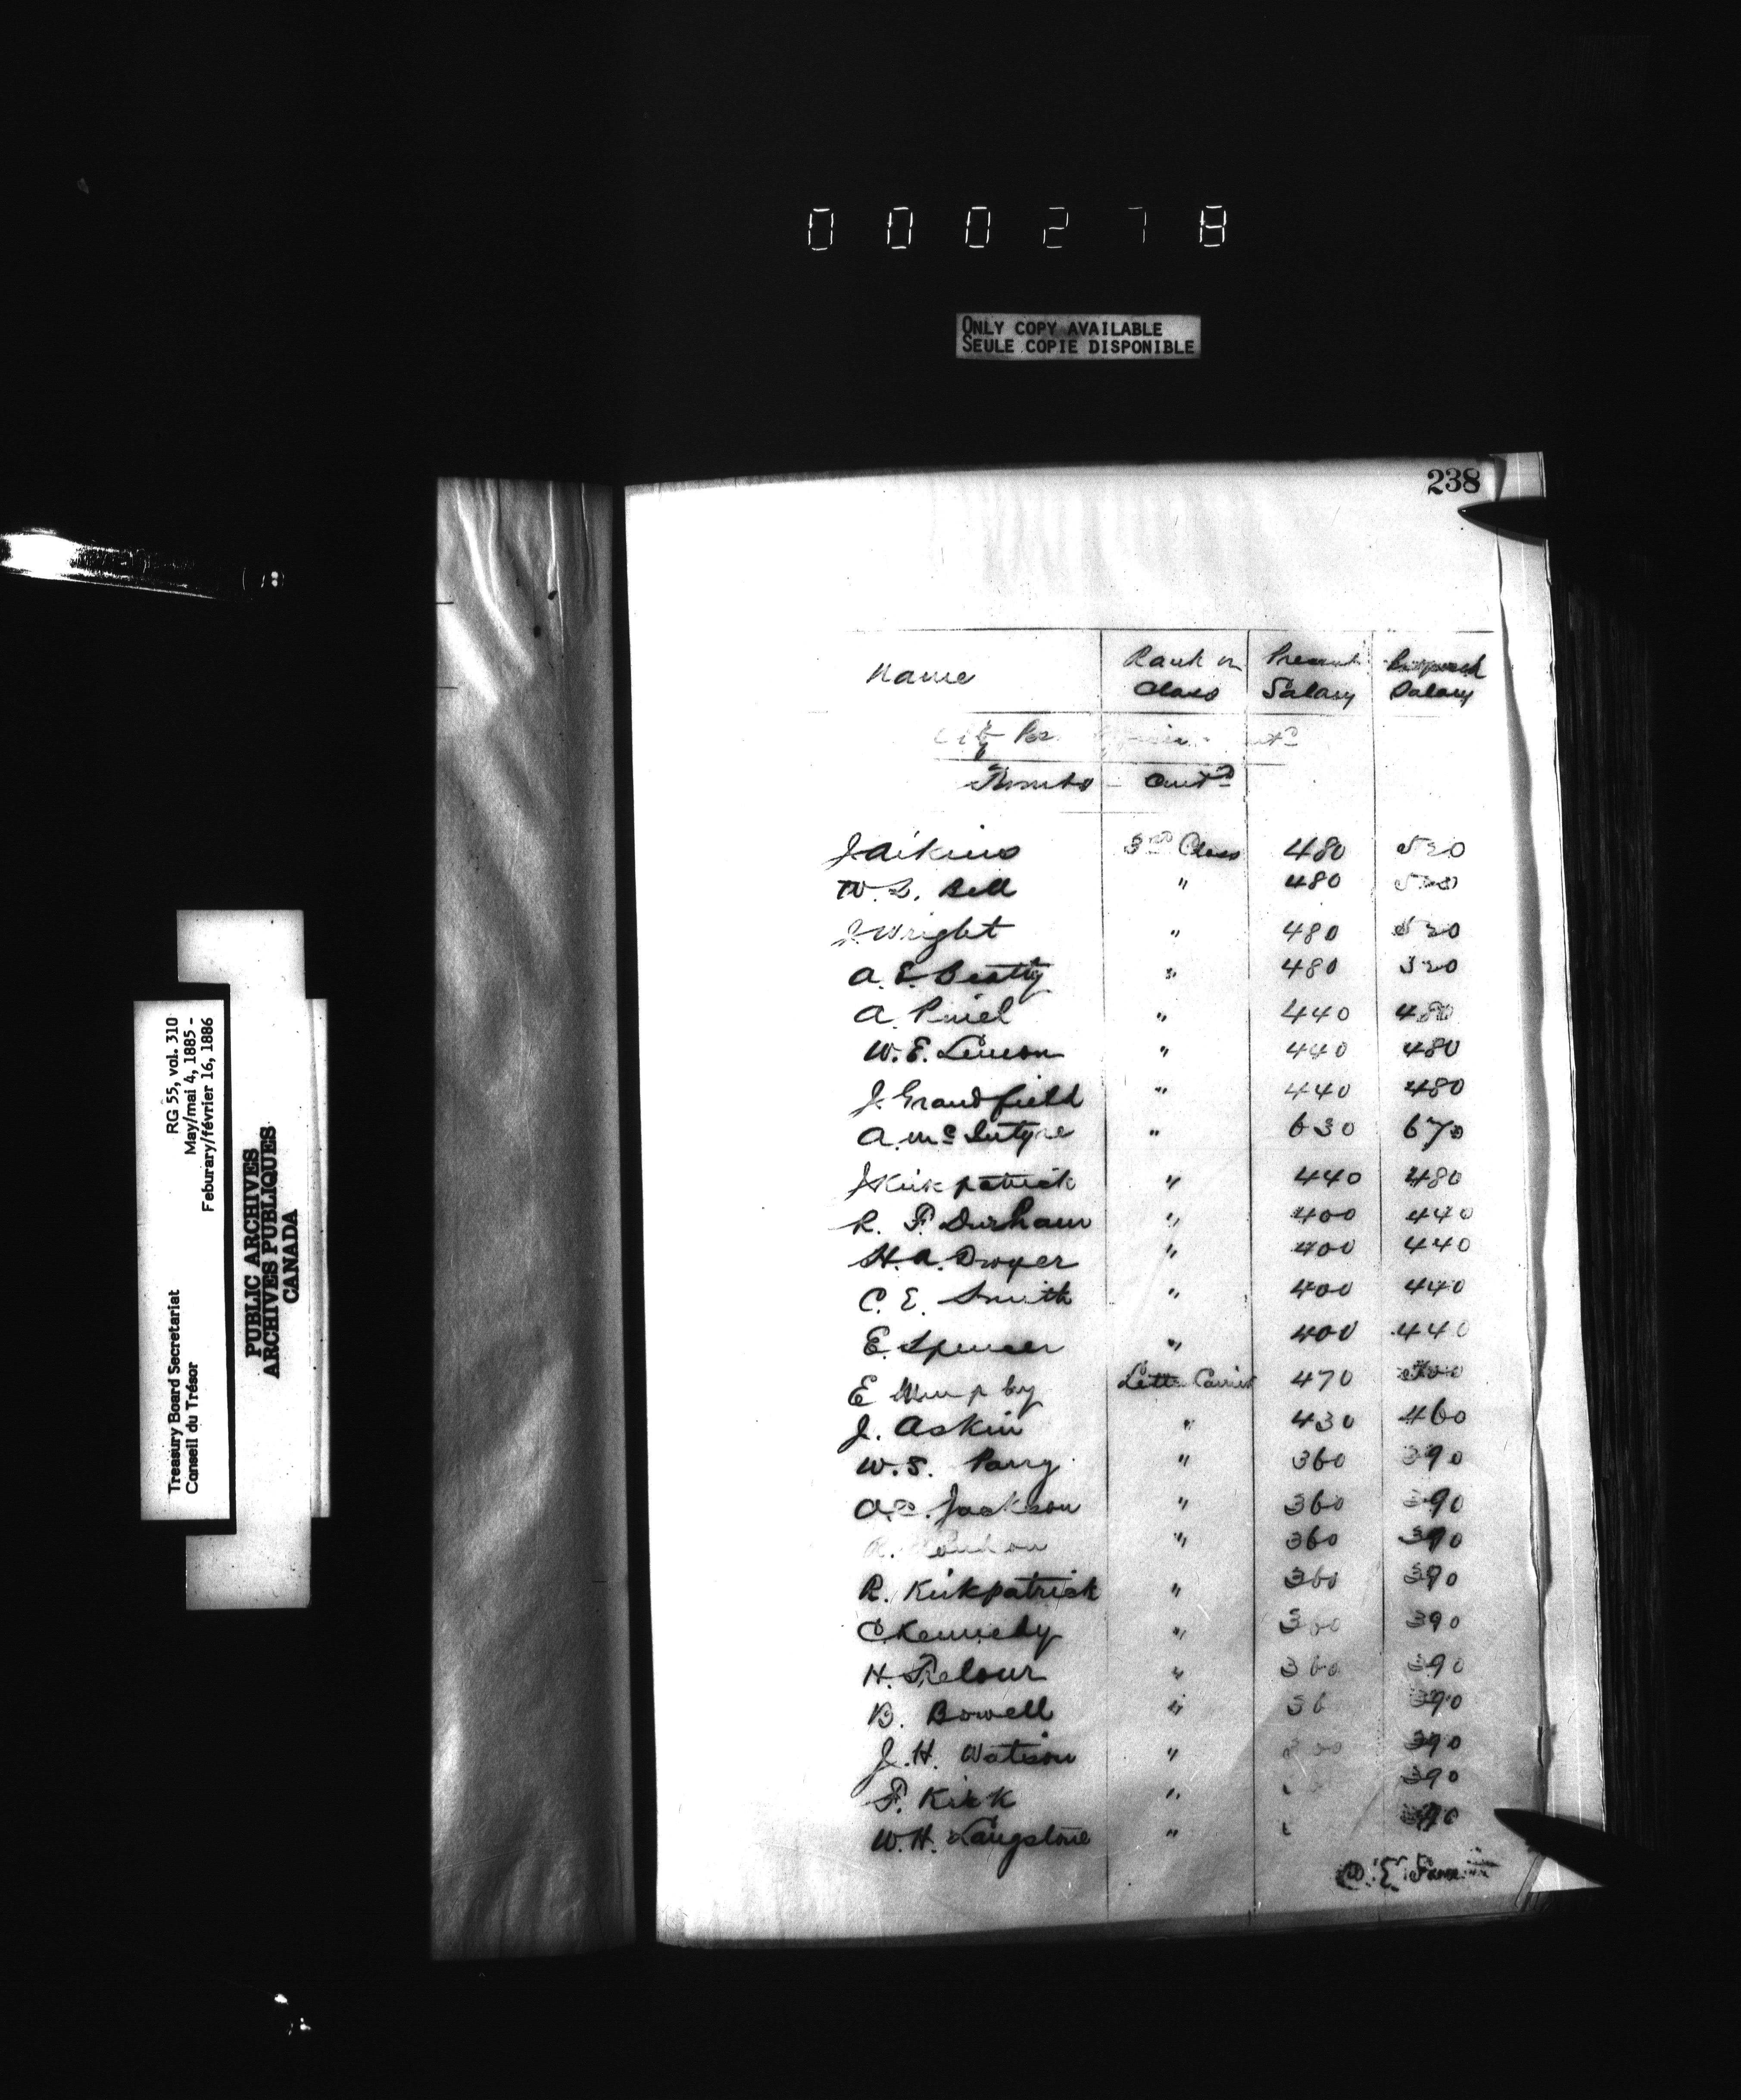 000278
ONLY COPY AVAILABLE
SEULE COPIE DISPONIBLE
238
Treasury Board Secretariat RG 55, vol. 310
Conseil du Trésor May/mai 4, 1885 -
Feburary/février 16, 1886
PUBLIC ARCHIVES
ARCHIVES PUBLIQUES
CANADA
Name Rank or Class Present Salary Proposed Salary
City Pos
Toronto - Contd
J Aikins 3rd Class 480 520
W. S. Bell " 480 520
J. Wright " 480 520
A. E. Beatty " 480 520
A. Piniel " 440 480
W. E. Lemon " 440 480
J. Grandfield " 440 480
A. McIntyre " 630 670
J Kirkpatrick " 440 480
R. F. Durham " 400 440
H. A. Dwyer " 400 440
C. E. Smith " 400 440
E. Spencer " 400 440
E Letter Carrier 470 500
J. Askin " 430 460
W. S. Parry " 360 390
A. Jackson " 360 390
R. " 360 390
R. Kirkpatrick " 360 390
C Kennedy " 360 390
H. Trelour " 360 390
B. Bowell " 36 390
J. H. Watson " 390
F. Kirk " 390
W. H. Langstone " 390